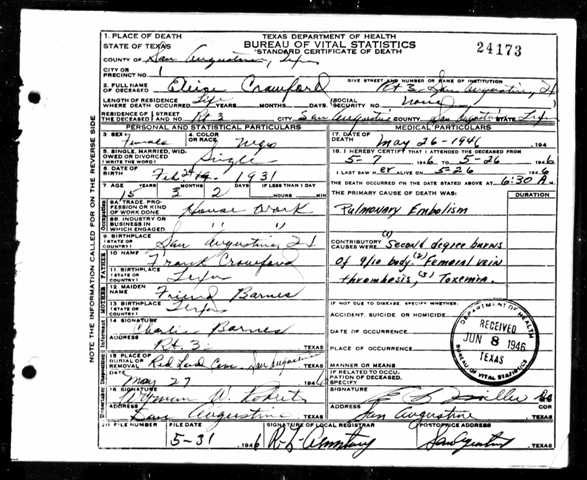 1. PLACE OF DEATH TEXAS DEPARTMENT OF HEALTH
STATE OF TEXAS BUREAU OF VITAL STATISTICS
STANDARD CERTIFICATE OF DEATH 24173
COUNTY OF San Augustine, Tex
CITY OR PRECINCT NO. 1 GIVE STREET AND NUMBER OR NAME OF INSTITUTION
2. FULL NAME OF DECEASED Crawford Rt 3 San Augustine, Tx
LENGTH OF RESIDENCE WHERE DEATH OCCURRED Life YEARS MONTHS DAYS SOCIAL SECURITY NO. none
RESIDENCE OF THE DECEASED STREET NO. Rt 3 CITY San Augustine COUNTY San Augustine STATE Tex
PERSONAL AND STATISTICAL PARTICULARS MEDICAL PARTICULARS
3. SEX Female 4. COLOR OR RACE Neg 17. DATE OF DEATH May 26-1946 194
5. SINGLE, MARRIED, WIDOWED OR DIVORCED (WRITE THE WORD) Single 18. I HEREBY CERTIFY THAT I ATTENDED THE DECEASED FROM
5-7 1946 TO 5-26 1946
6. DATE OF BIRTH Feb 24 1931 I LAST SAW H er ALIVE ON 5-26 1946
7. AGE YEARS MONTHS DAYS IF LESS THAN 1 DAY THE DEATH OCCURRED ON THE DATE STATED ABOVE AT 6:30 A. M.
15 3 2 HOURS MIN THE PRIMARY CAUSE OF DEATH WAS: DURATION
8A. TRADE, PROFESSION OR KIND OF WORK DONE House Work Pulmonary Embolism
8B. INDUSTRY OR BUSINESS IN WHICH ENGAGED " "
9. BIRTHPLACE (STATE OR COUNTRY) San Augustine, Tx CONTRIBUTORY CAUSES WERE: (1) Second degree burns
10. NAME Frank Crawford of 9/10 body. (2) Femoral vein
11. BIRTHPLACE (STATE OR COUNTRY) Texas thrombosis, (3) Toxemia.
12. MAIDEN NAME Barnes IF NOT DUE TO DISEASE, SPECIFY WHETHER:
13. BIRTHPLACE (STATE OR COUNTRY) Texas ACCIDENT, SUICIDE, OR HOMICIDE
14. SIGNATURE Charlie Barnes DATE OF OCCURRENCE
ADDRESS Rt 3 TEXAS PLACE OF OCCURRENCE
15. PLACE OF BURIAL OR REMOVAL Red Land Cem. San Augustine TEXAS MANNER OR MEANS
DATE May 27 1946 IF RELATED TO OCCUPATION OF DECEASED, SPECIFY
16. SIGNATURE Wyman W. Roberts SIGNATURE Miller
ADDRESS San Augustine TEXAS ADDRESS San Augustine TEXAS
FILE NUMBER FILE DATE SIGNATURE OF LOCAL REGISTRAR POSTOFFICE ADDRESS
5-31 1946 San Augustine
DEPARTMENT OF HEALTH
RECEIVED
JUN 8 1946
TEXAS
BUREAU OF VITAL STATISTICS
NOTE THE INFORMATION CALLED FOR ON THE REVERSE SIDE